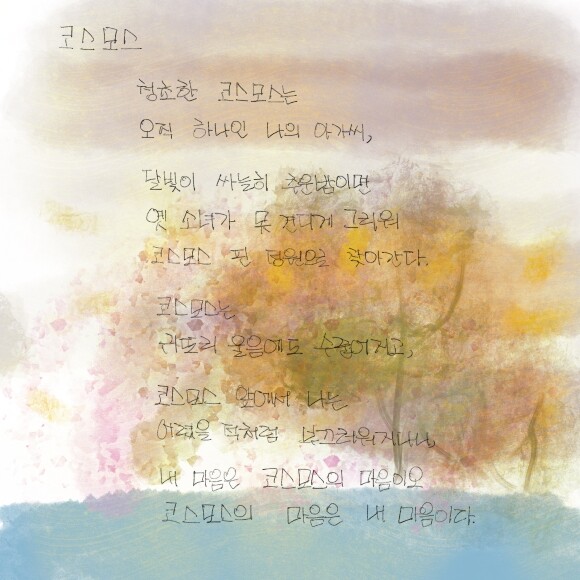 코스모스
청초한 코스모스는
오직 하나인 나의 아가씨,
달빛이 싸늘히 추운밤이면
옛 소녀가 못 견디게 그리워
코스모스 핀 정원으로 찾아간다.
코스모스는
귀또리 울음에도 수줍어지고,
코스모스 앞에서 나는
어렸을 적처럼 부끄러워지나니,
내 마음은 코스모스의 마음이오
코스모스의 마음은 내 마음이다.